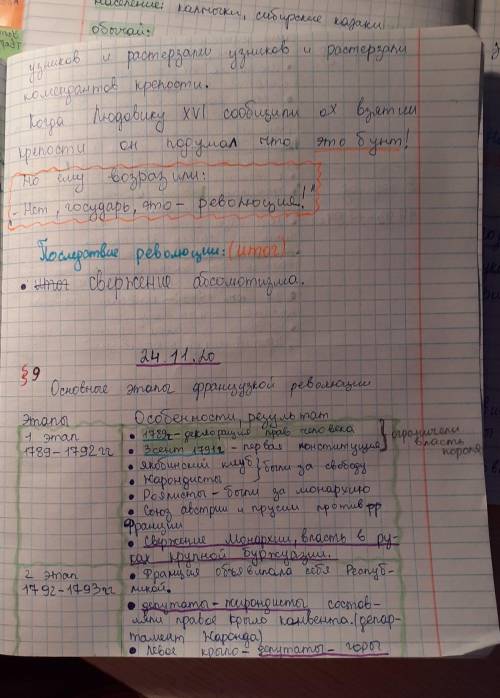 население: калмыки, сибирские казаки
обычай:
узников и растерзали узников и растерзали
комендантов крепости.
Когда Людовику XVI сообщили ох взятии
крепости он подумал что это бунт!
Но ему возразили:
"Нет, государь, это - революция!"
Последствие революции: (итог)
• итог свержение абсолютизма.
24.11.20
§9
Основные этапы французкой революции
Этапы Особенности, результат
1 этап • 1789г - декларация прав человека } ограничели
1789-1792гг • 3 сент 1791г - первая конституция власть
• якобинский клуб } были за свободу короля
• Жарондисты
• Роялисты - были за монархию
• Союз австрии и прусии против фр
Франции
• свержение монархии, власть в ру-
ках крупной буржуазии.
2 этап • Франция объявилала себя Респуб-
1792-1793гг ликой.
• депутаты - жирондисты состов-
ляли правое крыло конвента. (депар-
тамент Жаронда)
• левое крыло - депутаты - горы